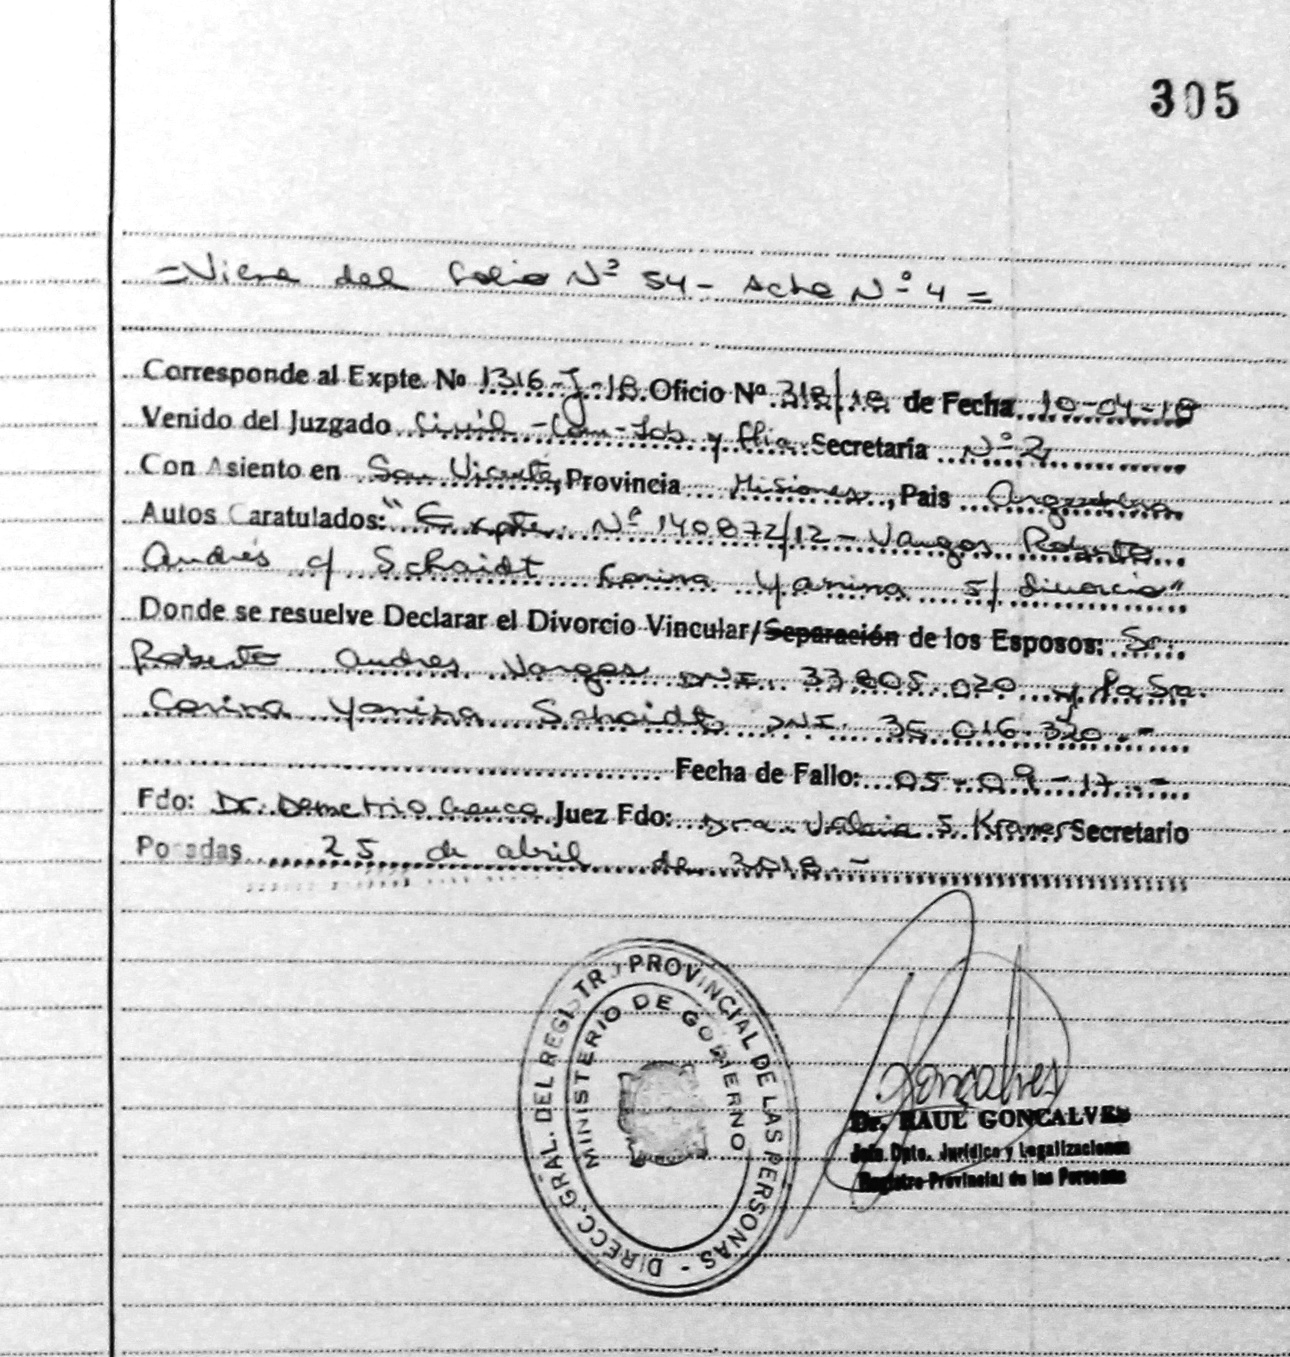 305
= Viene del Folio Nº 54 - Acta Nº 4 =
Corresponde al Expte. Nº 1316-J-18 Oficio Nº 318/18 de Fecha 10-04-18
Venido del Juzgado Civil - Com - Lab y Flia Secretaría Nº 2
Con Asiento en San Vicente, Provincia Misiones, Pais Argentina
Autos Caratulados: "Expte. Nº 140872/12 - Vargas Roberto
Andrés c/ Schaidt Carina Yanina s/ divorcio"
Donde se resuelve Declarar el Divorcio Vincular/Separación de los Esposos: Sr.
Roberto Andres Vargas DNI. 33.805.020 y la Sra.
Carina Yanina Schaidt, DNI. 35.016.320.-
Fecha de Fallo: 05-09-17.-
Fdo: Dr. Demetrio Juez Fdo: Dra. Valeria S. Kramer Secretario
Posadas 25 de abril de 2018.-
DIRECC. GRAL. DEL REGISTRO PROVINCIAL DE LAS PERSONAS -
MINISTERIO DE GOBIERNO
Goncalves
Dr. RAUL GONCALVES
Jefe Dpto. Jurídico y Legalizaciones
Registro Provincial de las Personas